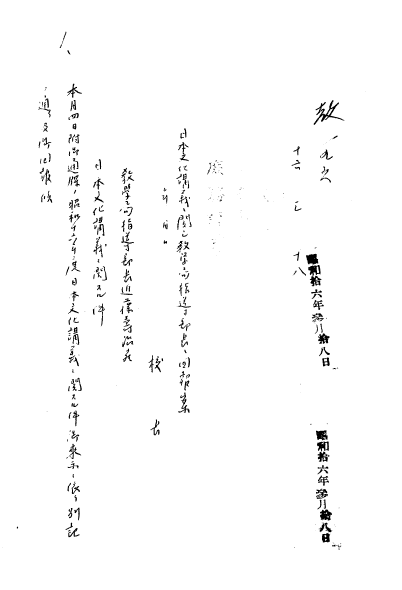 教一九六
十六、三、十八
昭和拾六年参月拾八日
昭和拾六年参月拾八日
日本文化講義ニ関シ教学局指導部長ヘ回報案
年 月 日
校長
教学局指導部長近藤寿治宛
日本文化講義ニ関スル件
本月四日附御通牒ノ昭和十六年度日本文化講義ニ関スル件御来示ニ依リ別記
ノ通リ及御回報候